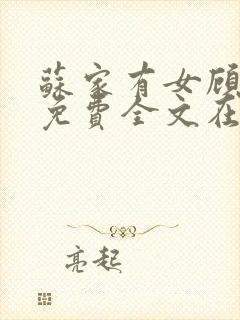 蘇家有女顾
免費全文在
亮起